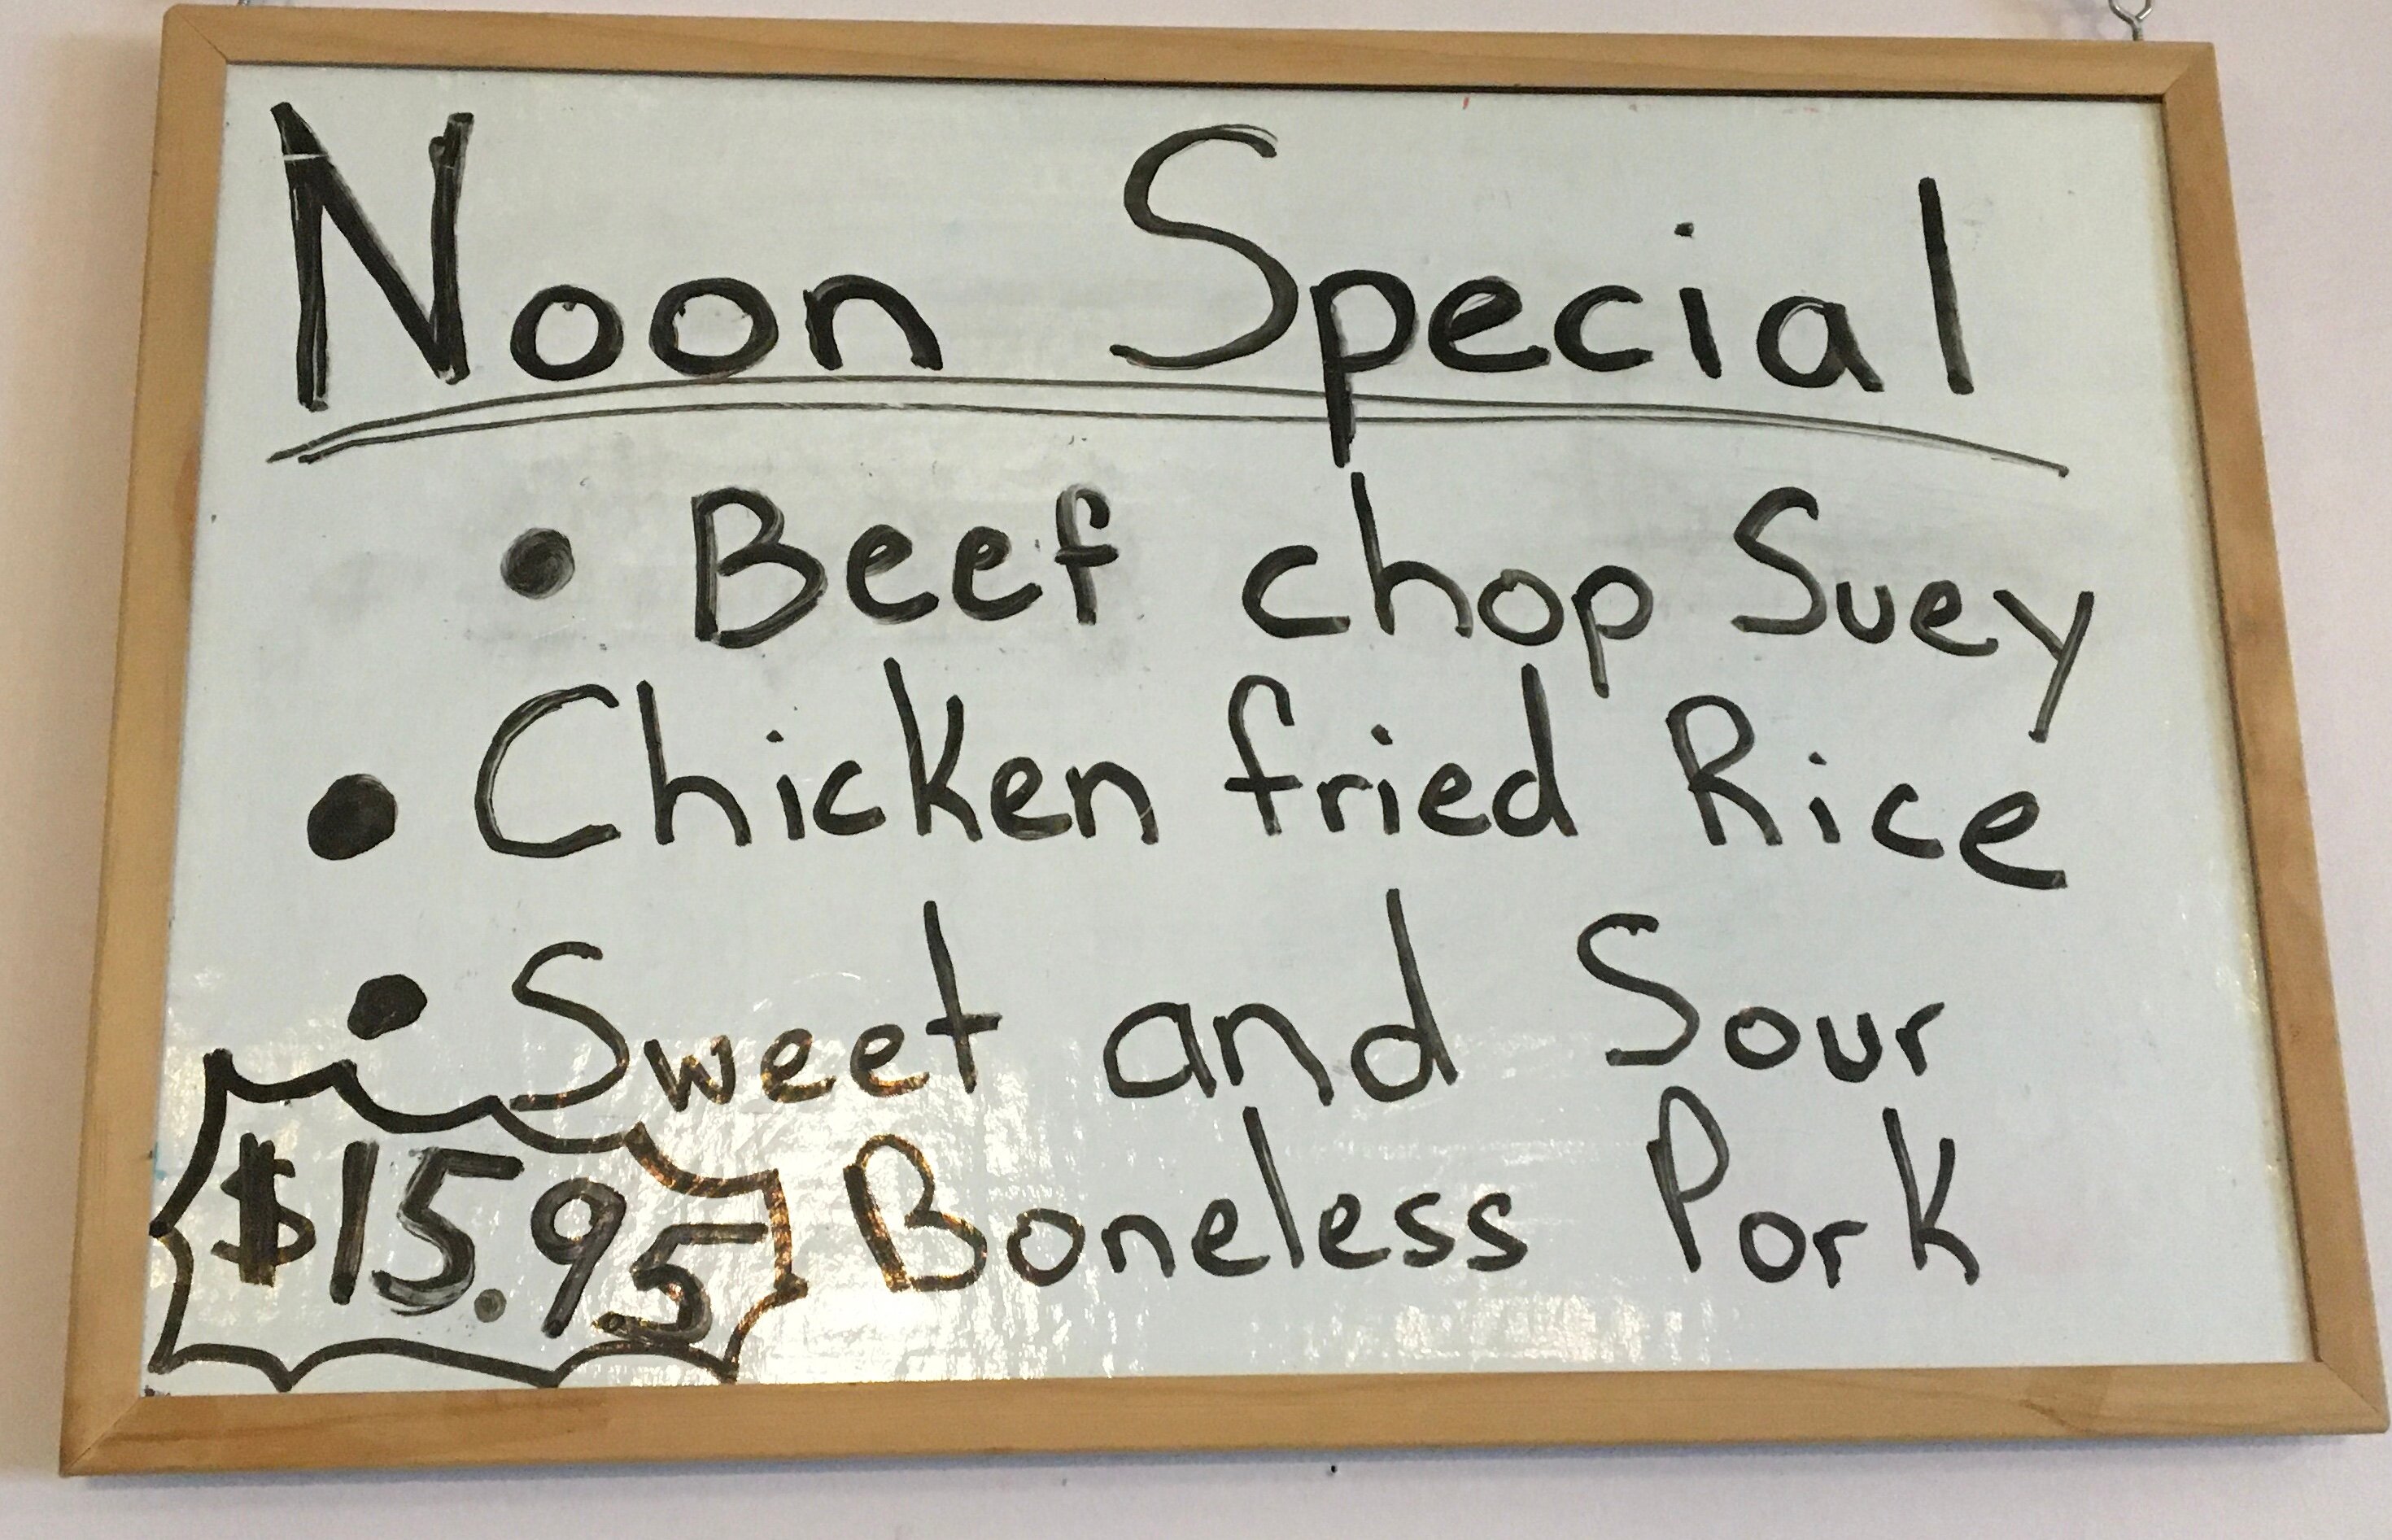 Noon Special
• Beef chop Suey
• Chicken fried Rice
• Sweet and Sour
Boneless Pork
$15.95